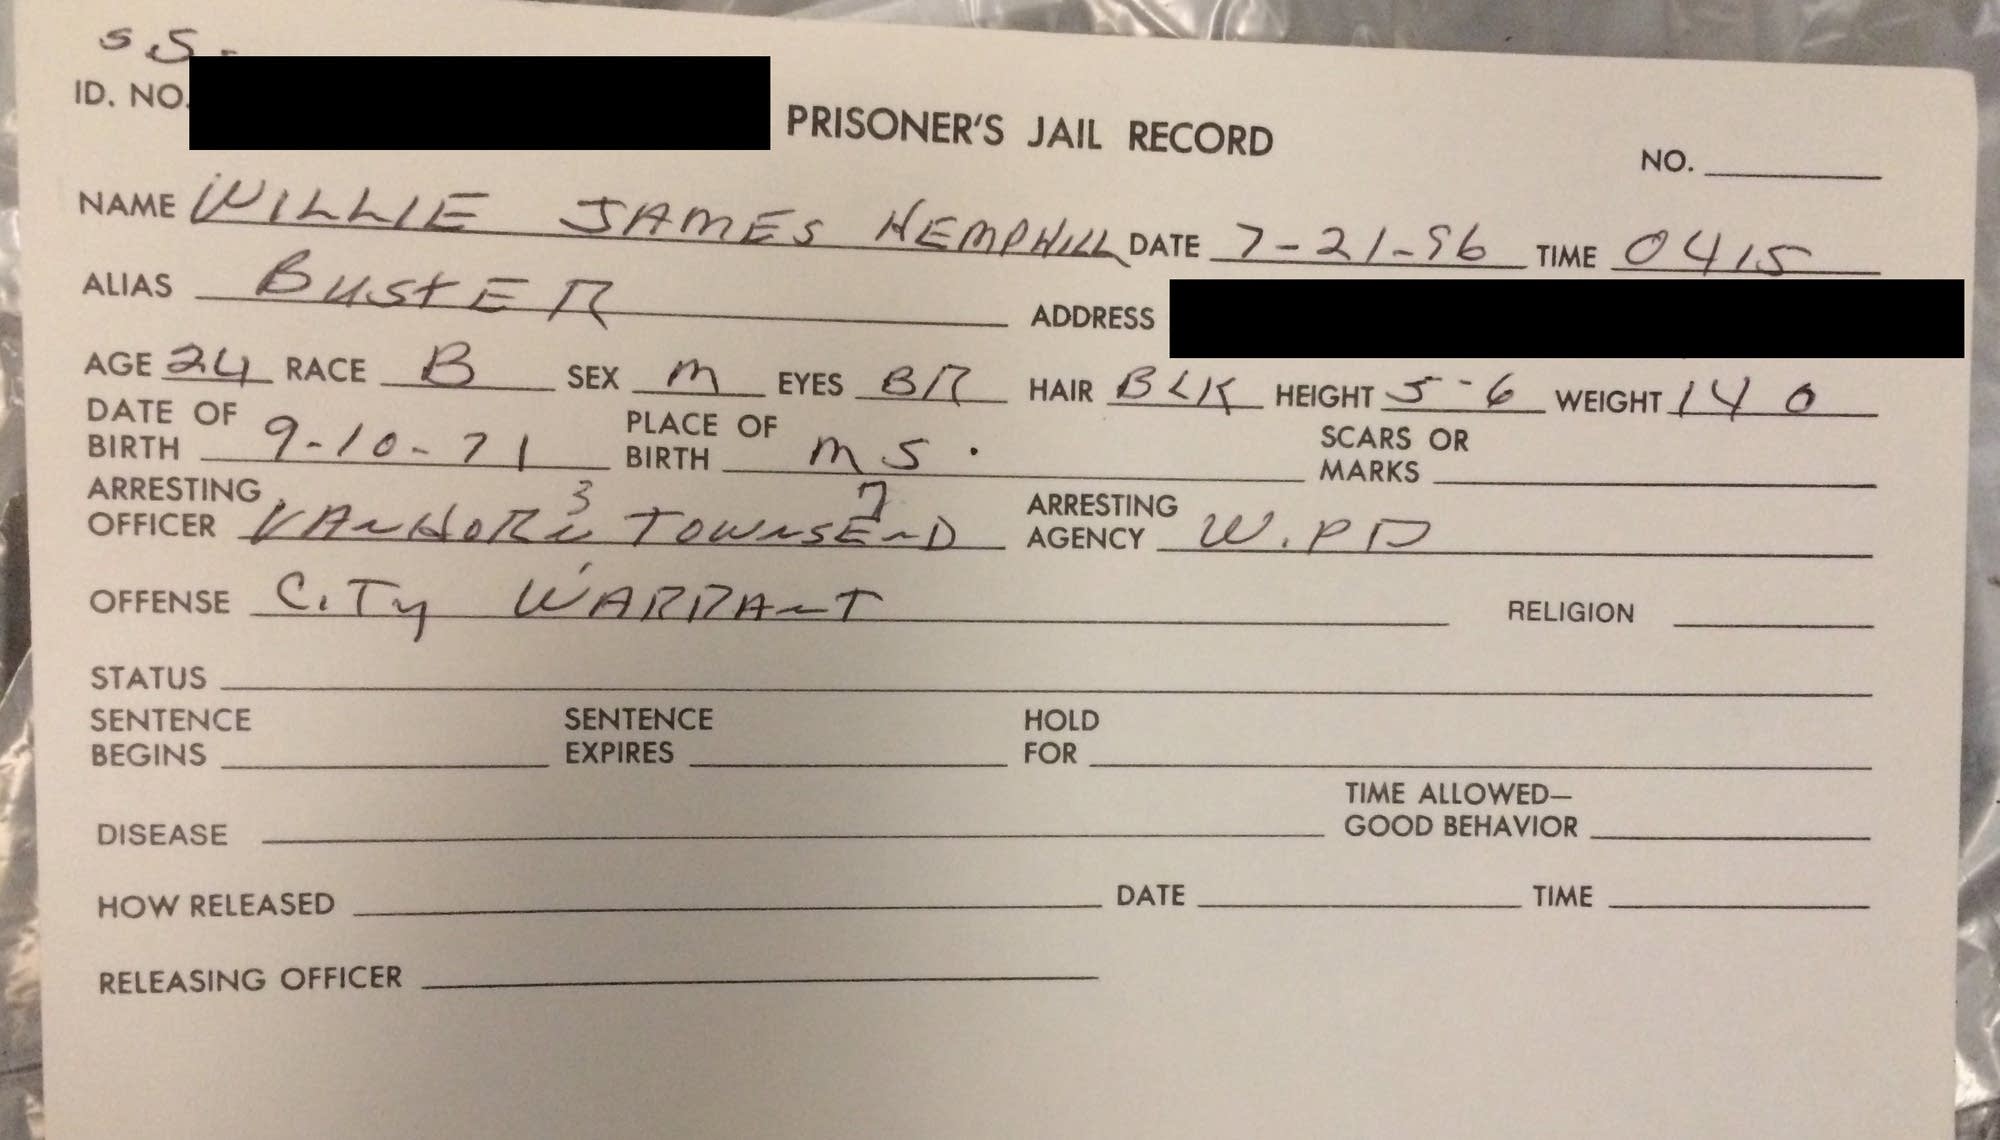 SS-
ID. NO.
PRISONER'S JAIL RECORD
NO.
NAME WILLIE JAMES HEMPHILL DATE 7-21-96 TIME 0415
ALIAS BUSTER ADDRESS
AGE 24 RACE B SEX M EYES BR HAIR BLK HEIGHT 5-6 WEIGHT 140
DATE OF BIRTH 9-10-71 PLACE OF BIRTH MS. SCARS OR MARKS
ARRESTING OFFICER VANHORN 3 TOWNSEND 7 ARRESTING AGENCY W.PD
OFFENSE CITY WARRANT RELIGION
STATUS
SENTENCE BEGINS SENTENCE EXPIRES HOLD FOR
DISEASE TIME ALLOWED— GOOD BEHAVIOR
HOW RELEASED DATE TIME
RELEASING OFFICER